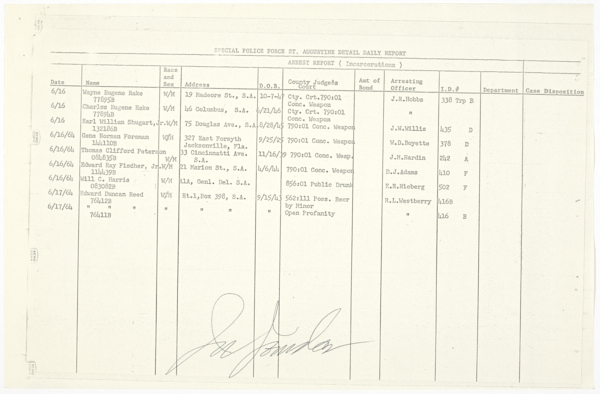 SPECIAL POLICE FORCE ST. AUGUSTINE DETAIL DAILY REPORT
ARREST REPORT ( Incarcerations )
Date Name Race and Sex Address D.O.B. County Judge's Court Amt of Bond Arresting Officer I.D.# Department Case Disposition
6/16 Wayne Eugene Rake W/M 19 Madeore St., S.A. 10-7-47 Cty. Crt.790:01 J.R.Hobbs 330 Trp B
77895B Conc. Weapon
6/16 Charles Eugene Rake W/M 46 Columbus, S.A. 4/21/46 Cty. Crt.790:01 "
77894B Conc. Weapon
6/16 Earl William Shugart,Jr. W/M 75 Douglas Ave., S.A. 8/28/45 790:01 Conc. Weapon J.W.Willis 435 D
132186B
6/16/64 Gene Norman Foreman W/M 327 East Forsyth 9/25/25 790:01 Conc. Weapon W.D.Suyette 378 D
144110B Jacksonville, Fla.
6/16/64 Thomas Clifford Peterson W/M 33 Cincinnatti Ave. 11/16/39 790:01 Conc. Weap. J.H.Hardin 242 A
084835B S.A.
6/16/64 Edward Kay Fledher, Jr. W/M 21 Marion St., S.A. 4/6/44 790:01 Conc. Weap. D.J.Adams 410 F
114439B
6/16/64 Will C. Harris A1A, Genl. Del. S.A. 856:01 Public Drunk E.N.Nieberg 502 F
083082B
6/17/64 Edward Duncan Reed W/M Rt.1,Box 398, S.A. 9/15/43 562:111 Poss. Beer N.L.Westberry 416B
76412B by Minor
6/17/64 " " " " " Open Profanity " 416 B
76411B